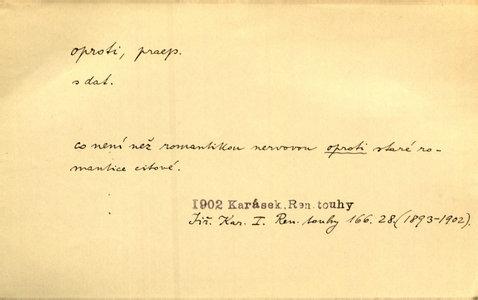 oproti, praep.
s dat.
co není než romantikou nervovou oproti staré ro-
mantice citové.
1902 Karásek, Ren. touhy
Jiř. Kar. I. Ren. touhy 166. 28. (1893-1902).